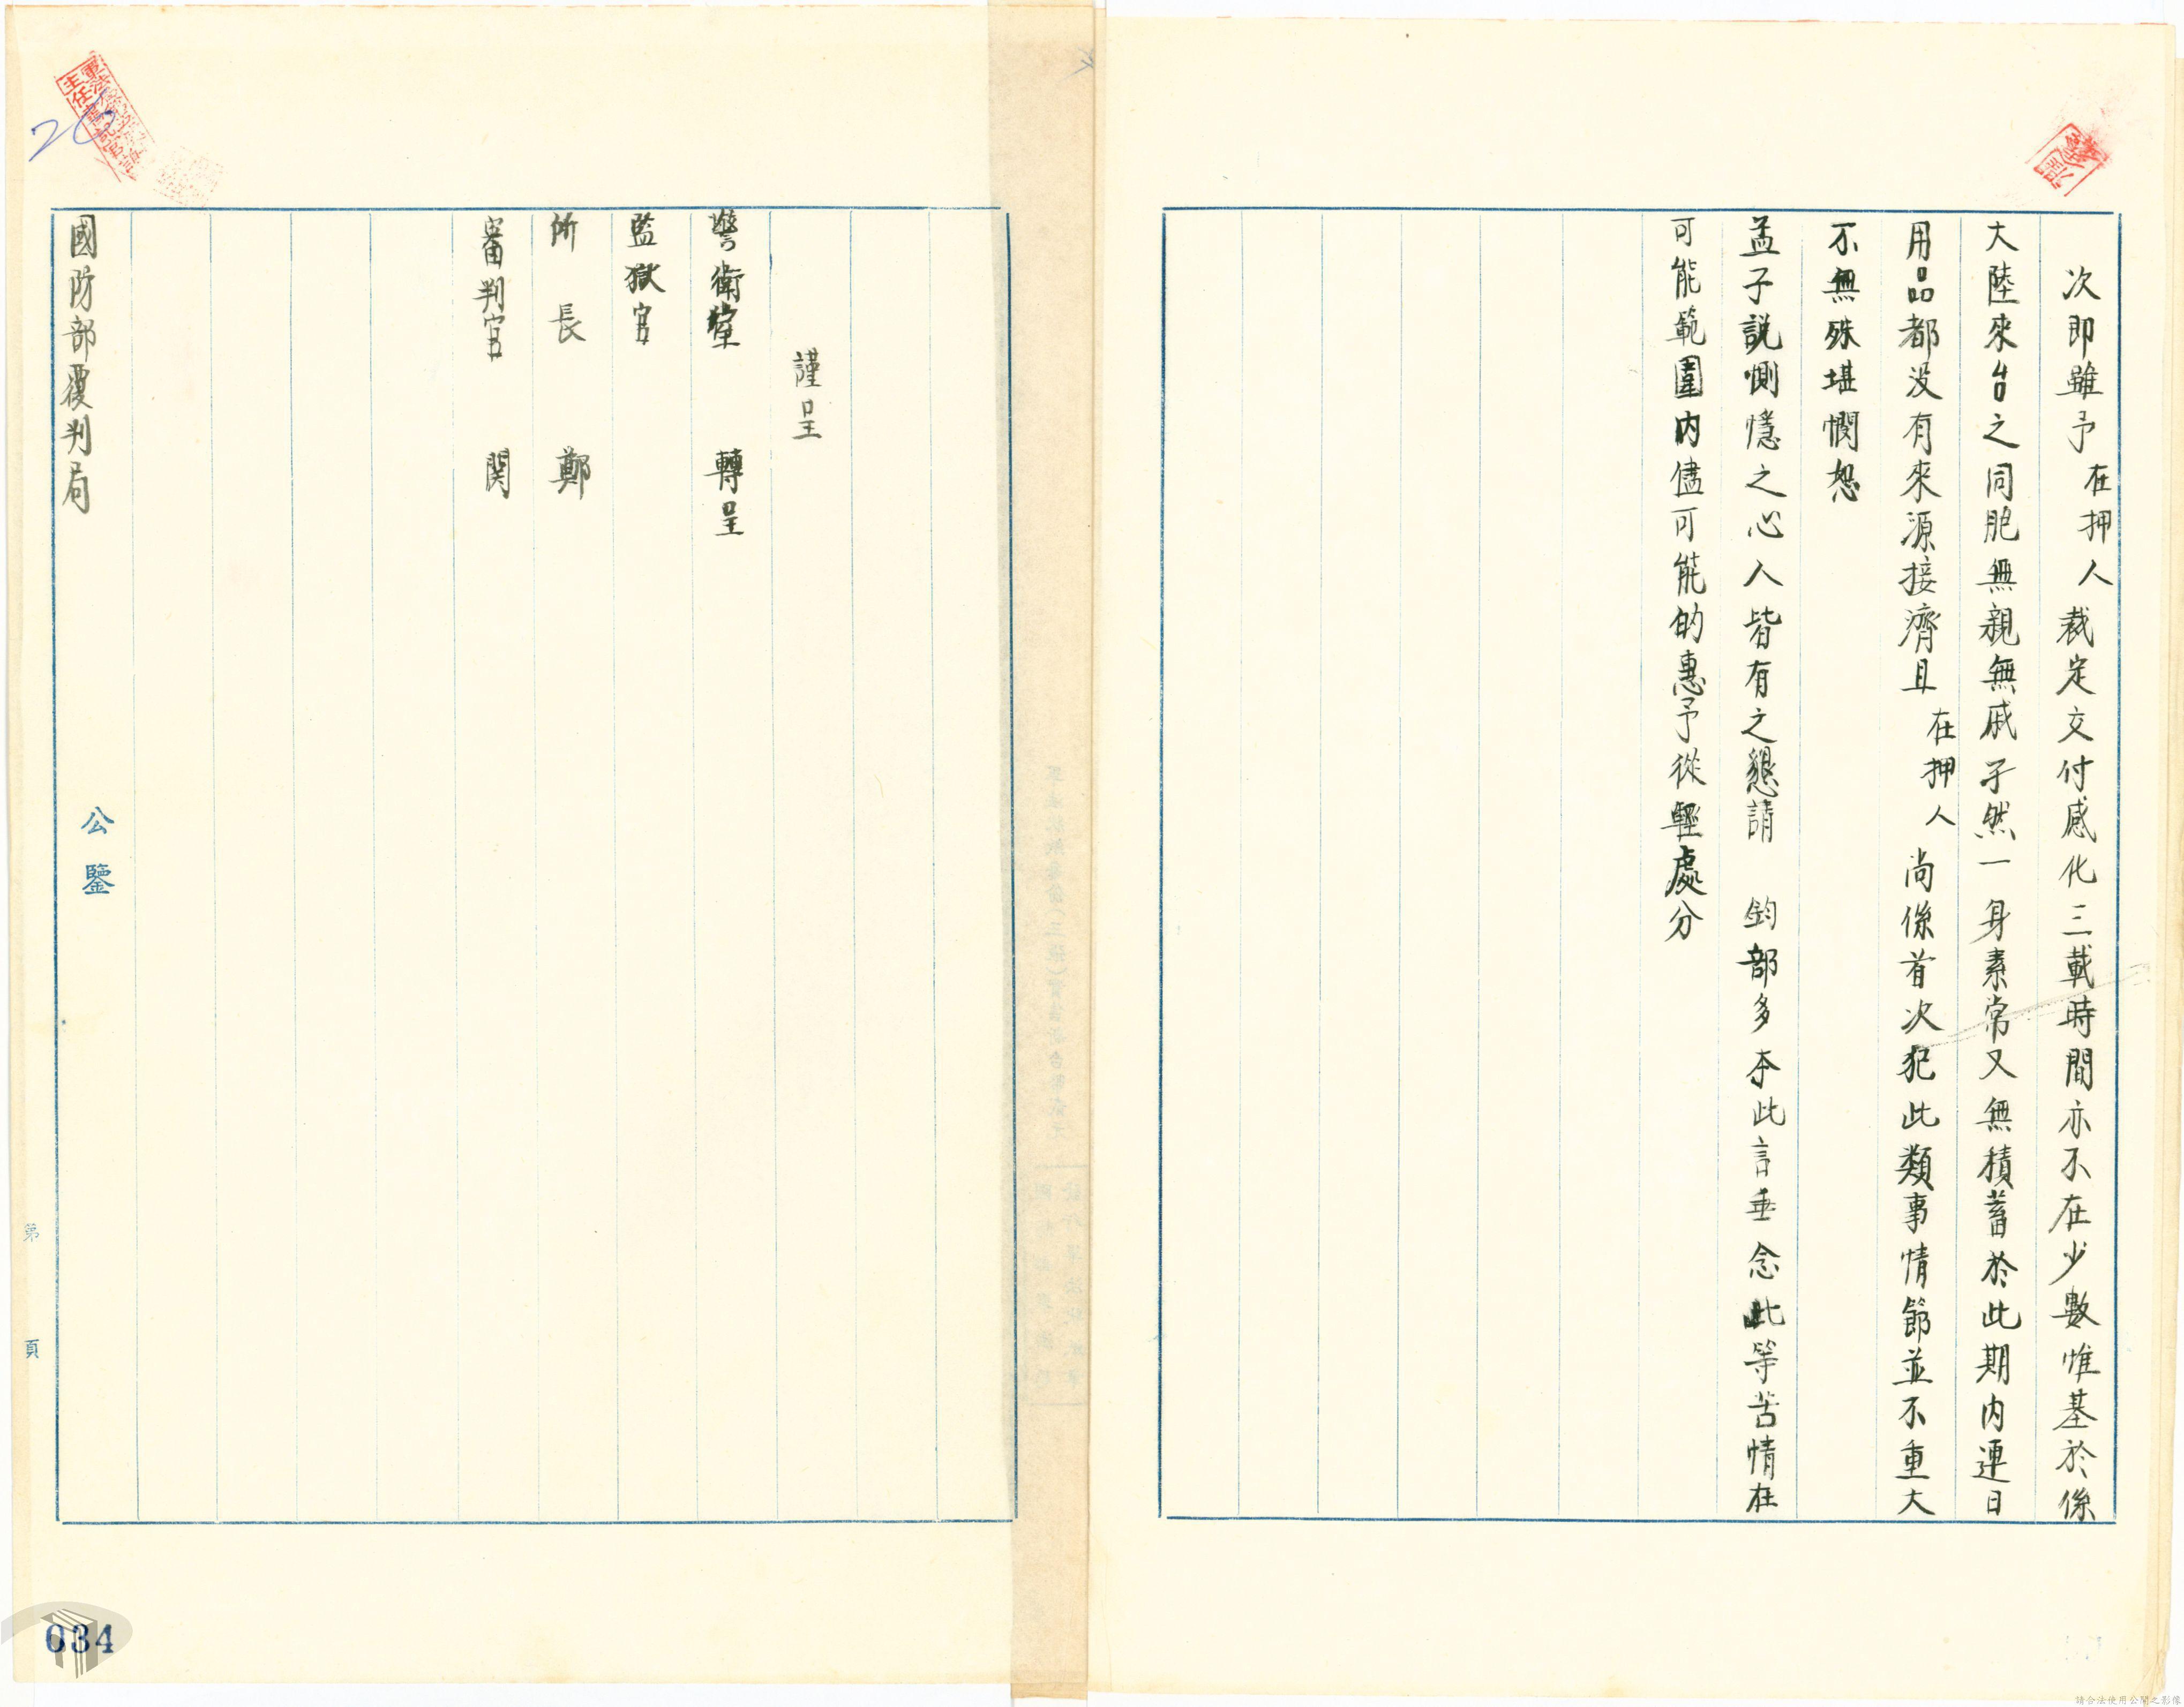 次即雖予在押人裁定交付感化三載時間亦不在少數惟基於係
大陸來台之同胞無親無戚孑然一身素常又無積蓄於此期內連日
用品都没有來源接濟且在押人尚係首次犯此類事情節並不重大
不無殊堪憫恕
孟子說惻隱之心人皆有之懇請 鈞部多本此言垂念此等苦情在
可能範圍內儘可能的惠予從輕處分
謹呈
警衛室 轉呈
監獄官
所長 鄭
審判官 関
國防部覆判局
公鑒
第 頁
034
請合法使用公開之影像